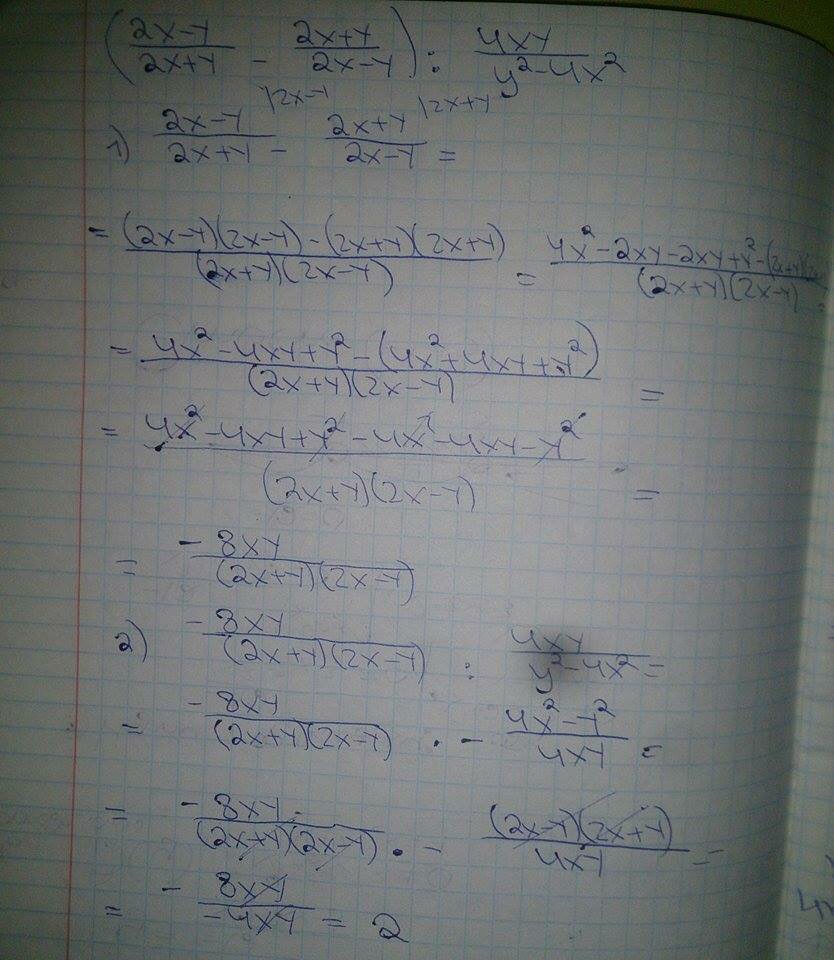 ((2x-y)/(2x+y) - (2x+y)/(2x-y)) : 4xy/(y²-4x²)
1) (2x-y)/(2x+y) |2x-y - (2x+y)/(2x-y) |2x+y =
= ((2x-y)(2x-y)-(2x+y)(2x+y))/((2x+y)(2x-y)) = (4x²-2xy-2xy+y²-(2x+y)/((2x+y)(2x-y)) =
= (4x²-4xy+y²-(4x²+4xy+y²))/((2x+y)(2x-y)) =
= (4x²-4xy+y²-4x²-4xy-y²)/((2x+y)(2x-y)) =
= - 8xy/((2x+y)(2x-y))
2) - 8xy/((2x+y)(2x-y)) : 4xy/(y²-4x²) =
= - 8xy/((2x+y)(2x-y)) · - (4x²-y²)/4xy =
= - 8xy/((2x+y)(2x-y)) · - ((2x-y)(2x+y))/4xy =
= - 8xy/-4xy = 2